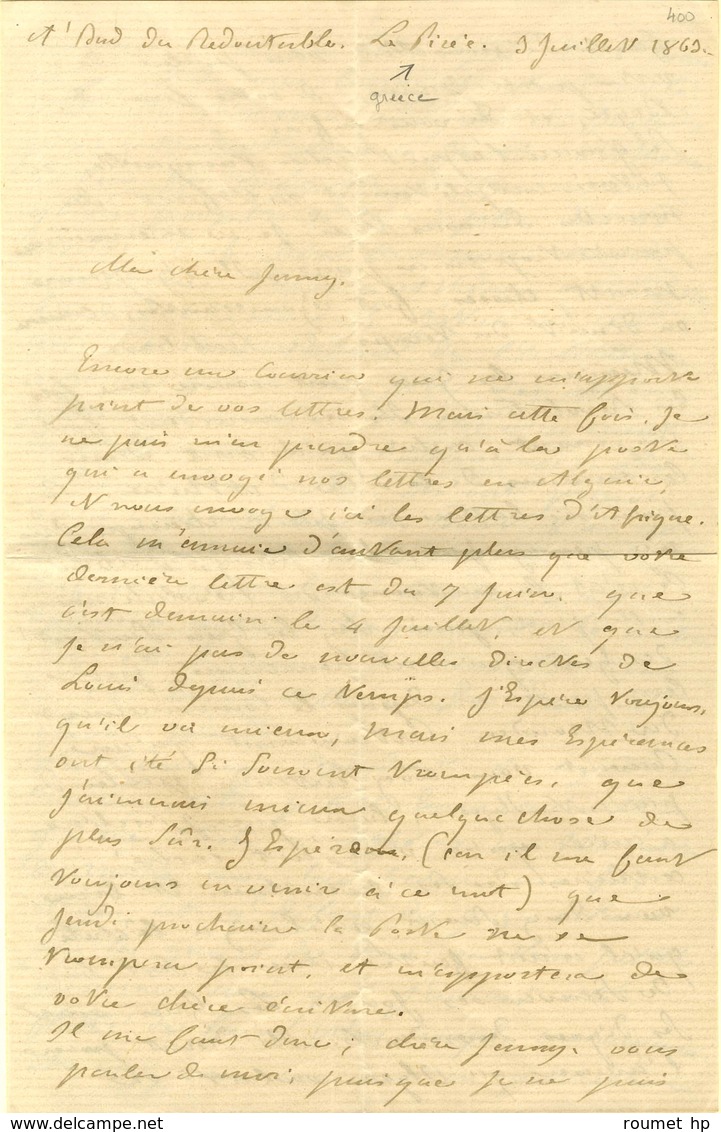 400
A' Bord du Redoutable. Le Pirée. 3 Juillet 1863.
↑
greice
Ma chère Jenny.
Encore un Courrier qui ne m'apporte
point de vos lettres. Mais cette fois, Je
ne puis m'en prendre qu'à la poste
qui a envoyé nos lettres en Algerie,
et nous envoye ici les lettres d'Afrique.
Cela m'ennuie d'autant plus que votre
dernière lettre est du 7 Juin. que
c'est demain le 4 Juillet, et que
Je n'ai pas de nouvelles directes de
Louis depuis ce temps. J'Espère toujours,
qu'il va mieux, Mais mes Espérances
ont été Si Souvent trompées, que
J'aimerais mieux quelque chose de
plus Sûr. J'Espère (car il me faut
toujours en venir à ce mot) que
Jeudi prochain la Poste ne se
trompera point, et m'apportera de
votre chère écriture.
Il me faut donc, chère Jenny. vous
parler de moi, puisque Je ne puis
roumet hp